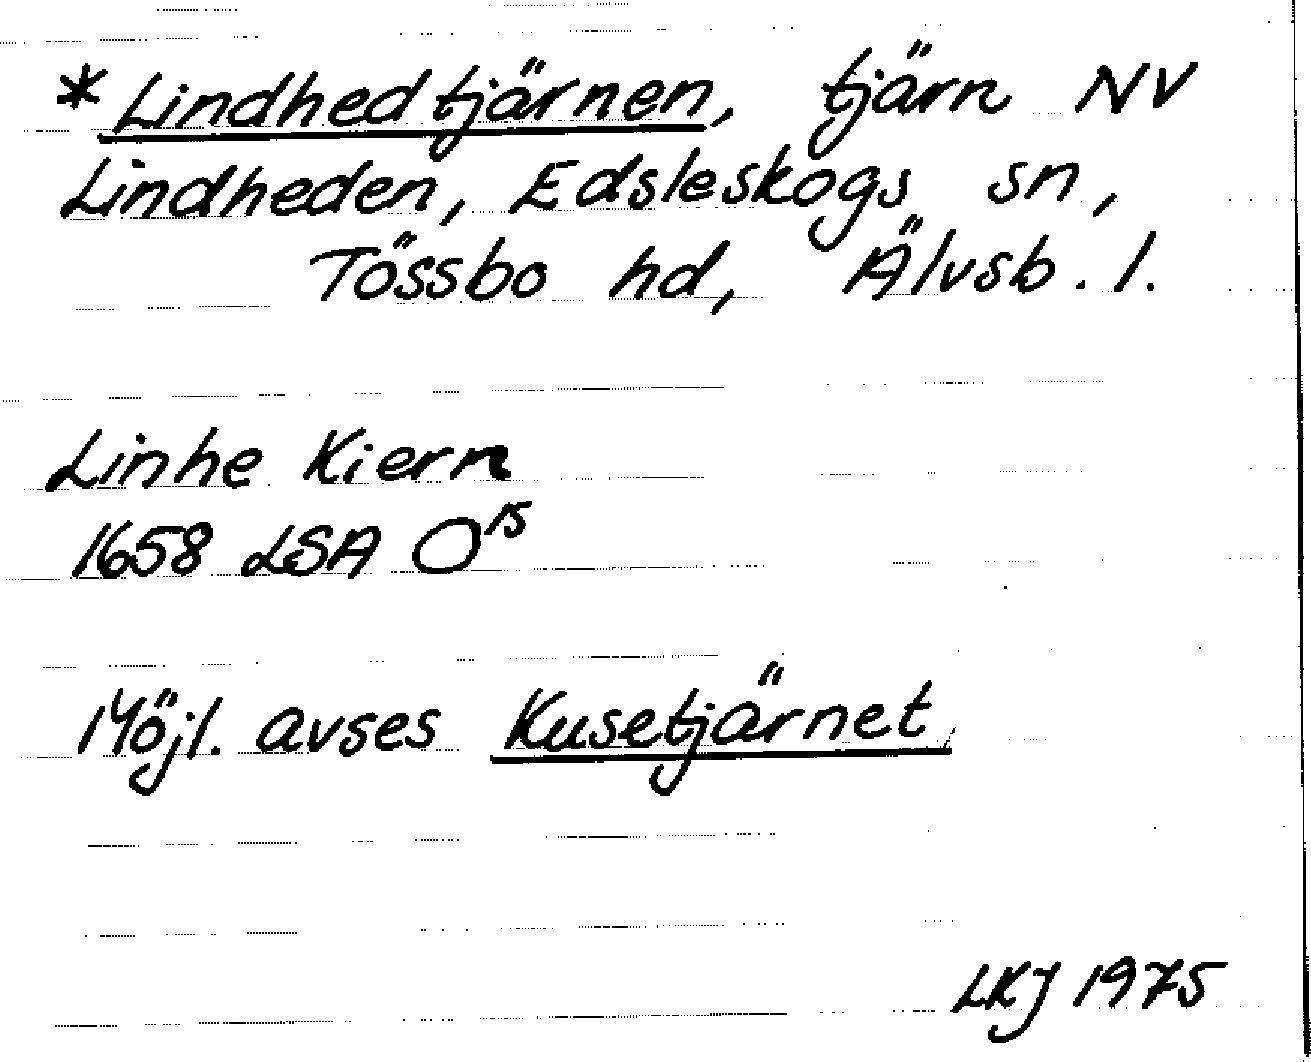 *Lindhedtjärnen, tjärn NV
Lindheden, Edsleskogs sn,
Tössbo hd, Älvsb. l.
Linhe Kiern
1658 LSA O15
Möjl. avses Kusetjärnet
LKJ 1975